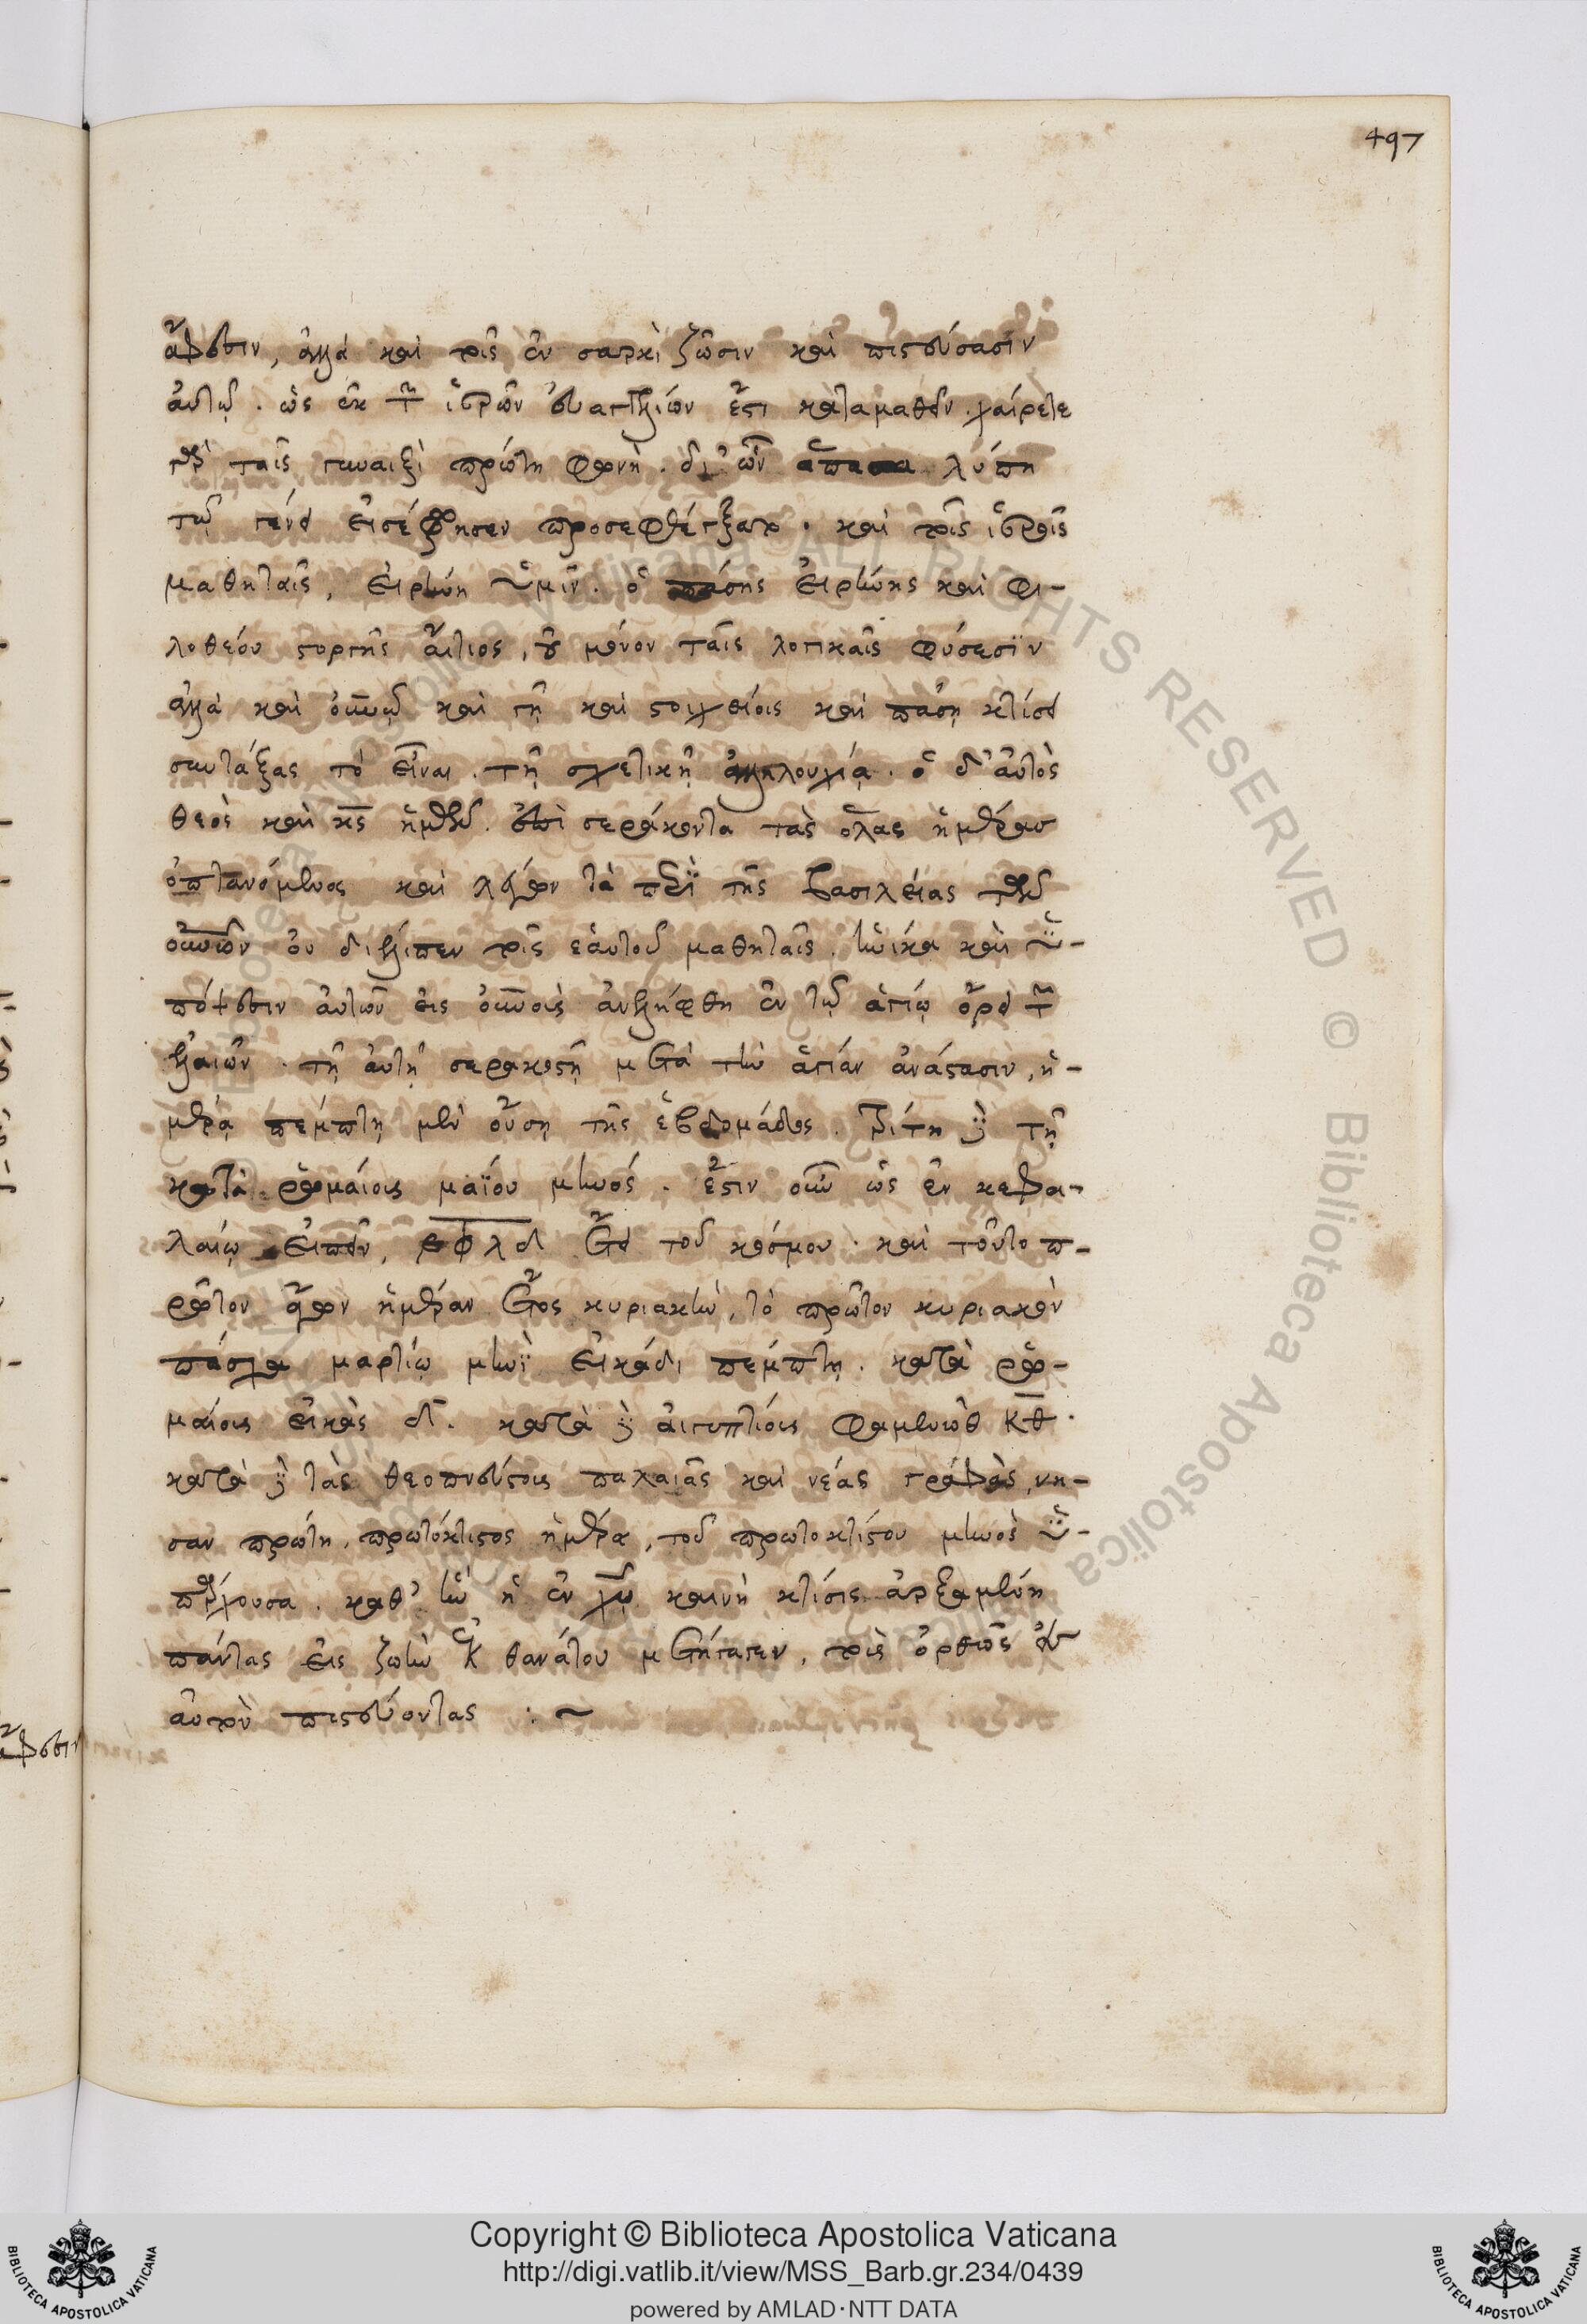 497
ἄφεσιν, ἀλλὰ καὶ τοῖς ἐν σαρκὶ ζῶσιν καὶ πιστεύσασιν
αὐτῷ. ὡς ἐκ τῶν ἱερῶν εὐαγγελίων ἔστι καταμαθεῖν. χαίρετε
γὰρ ταῖς γυναιξὶ πρώτη φωνὴ. δι' ὧν ἅπασα λύπη
τῷ γένει εἰσέφρησεν προσεφθέγξατο. καὶ τοῖς ἱεροῖς
μαθηταῖς, εἰρήνη ὑμῖν. ὁ πάσης εἰρήνης καὶ φι-
λοθέου στοργῆς αἴτιος, οὐ μόνον ταῖς λογικαῖς φύσεσϊν
ἀλλὰ καὶ οὐνῷ καὶ γῇ καὶ στοιχείοις καὶ πάσῃ κτίσει
συντάξας τὸ εἶναι. τῇ σχετικῇ ἀλληλουχίᾳ. ὁ δ' αὐτὸς
θεὸς καὶ κς ἡμῶν. ἐπὶ σεράκοντα τὰς ὅλας ἡμέρας
ὀπτανόμενος καὶ λέγων τὰ περὶ τῆς βασιλείας τῶν
οὐνῶν οὐ διέλιπεν τοῖς ἑαυτοῦ μαθηταῖς. ἡνίκα καὶ ὑ-
πόψεσιν αὐτῶν εἰς οὐνοὺς ἀνελήφθη ἐν τῷ ἁγίῳ ὄρει τῶν
ἐλαιῶν. τῇ αὐτῇ σερακοστῇ μετὰ τὴν ἁγίαν ἀνάστασιν, ἡ-
μέρᾳ πέμπτῃ μὲν οὔσῃ τῆς ἑβδομάδος. τρίτῃ δὲ τῇ
κατὰ ῥωμαίους μαΐου μηνός. ἔστιν οὖν ὡς ἐν κεφα-
λαίῳ εἰπεῖν, εφλδ ἔτει τοῦ κόσμου. καὶ τοῦτο π-
ρῶτον ἦγον ἡμέραν ἔτος κυριακὴν, τὸ πρῶτον κυριακὸν
πάσχα μαρτίῳ μηνὶ εἰκάδι πέμπτῃ. κατὰ ῥω-
μαίους εἰκὰς δ. κατὰ δὲ αἰγυπτίους φαμενὼθ κθ.
κατὰ δὲ τὰς θεοπνεύστους παλαιᾶς καὶ νέας γραφὰς, νη-
σαν πρώτη, πρωτόκτιστος ἡμέρα, τοῦ πρωτοκτίστου μηνὸς ὑ-
πάρχουσα. καθ' ἣν ἡ ἐν χω καινὴ κτίσις ἀρξαμένη
πάντας εἰς ζωὴν ἐκ θανάτου μετήγαγεν, τοὺς ὀρθῶς εἰς
αὐτὸν πιστεύοντας :~
Copyright © Biblioteca Apostolica Vaticana
http://digi.vatlib.it/view/MSS_Barb.gr.234/0439
powered by AMLAD·NTT DATA